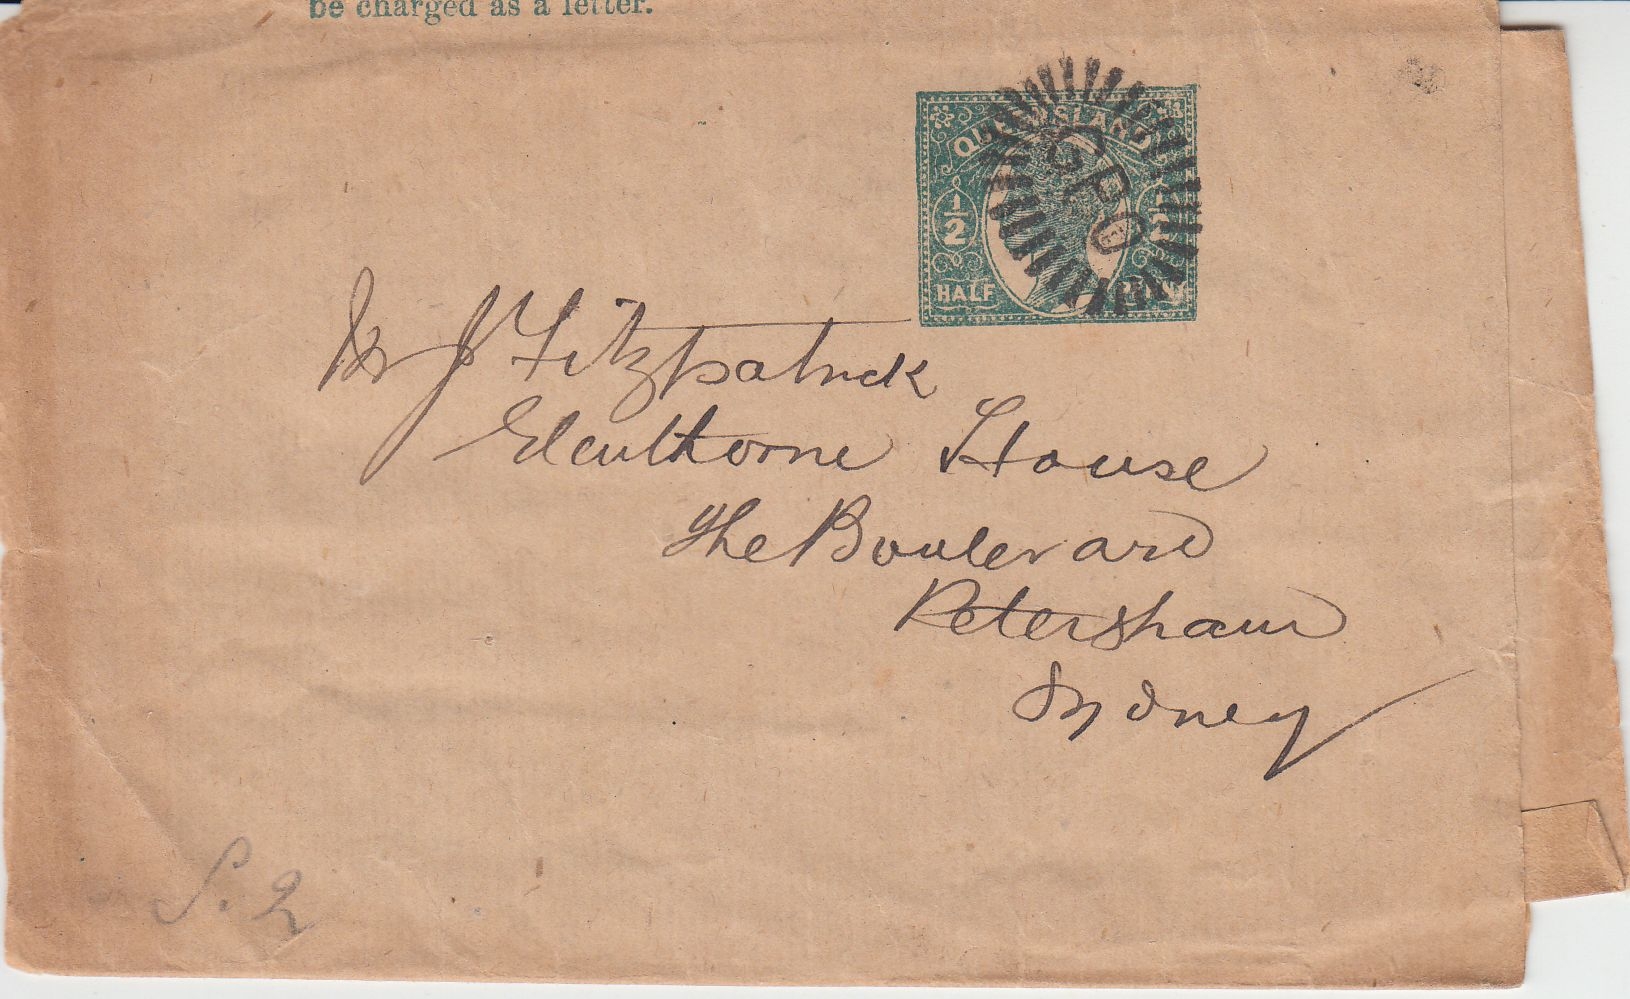 be charged as a letter.
QUEENSLAND
GPO
1/2 1/2
HALF PENNY
Mr J Fitzpatrick
Eleulthorne House
The Boulevard
Petersham
Sydney
S. 2